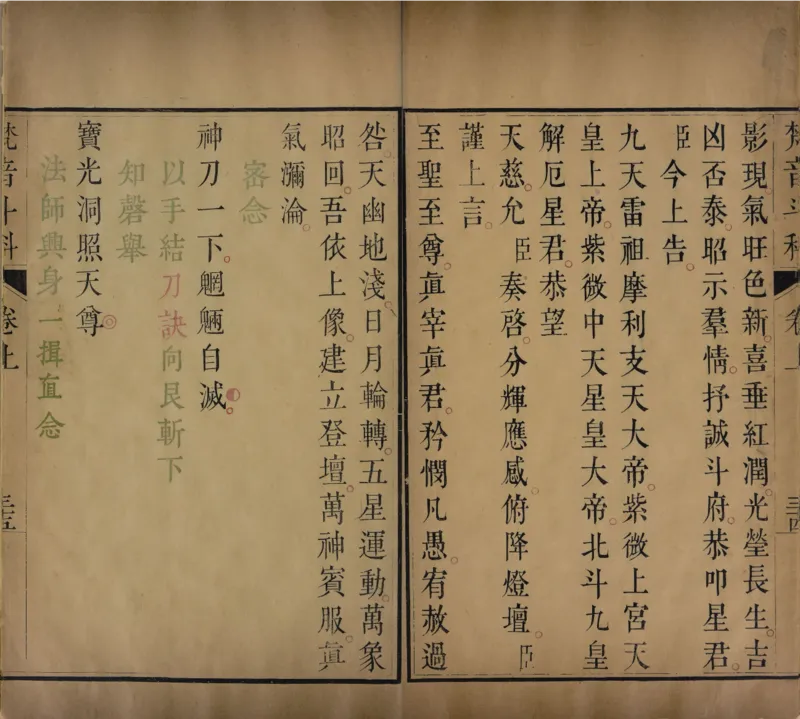 梵音斗科 卷上 三四
影現氣旺色新。喜垂紅潤。光瑩長生。吉
凶否泰。昭示羣情。抒誠斗府。恭叩星君。
臣今上告。
九天雷祖摩利支天大帝。紫微上宮天
皇上帝。紫微中天星皇大帝。北斗九皇
解厄星君。恭望
天慈。允臣奏啓。分輝應感。俯降燈壇。臣
謹上言。
至聖至尊。眞宰眞君。矜憫凡愚。宥赦過
咎。天幽地淺。日月輪轉。五星運動。萬象
昭回。吾依上像。建立登壇。萬神賓服。眞
氣瀰淪。
密念
神刀一下。魍魎自滅。
以手結刀訣向艮斬下
知磬舉
寶光洞照天尊
法師興身一揖直念
梵音斗科 卷上 三五